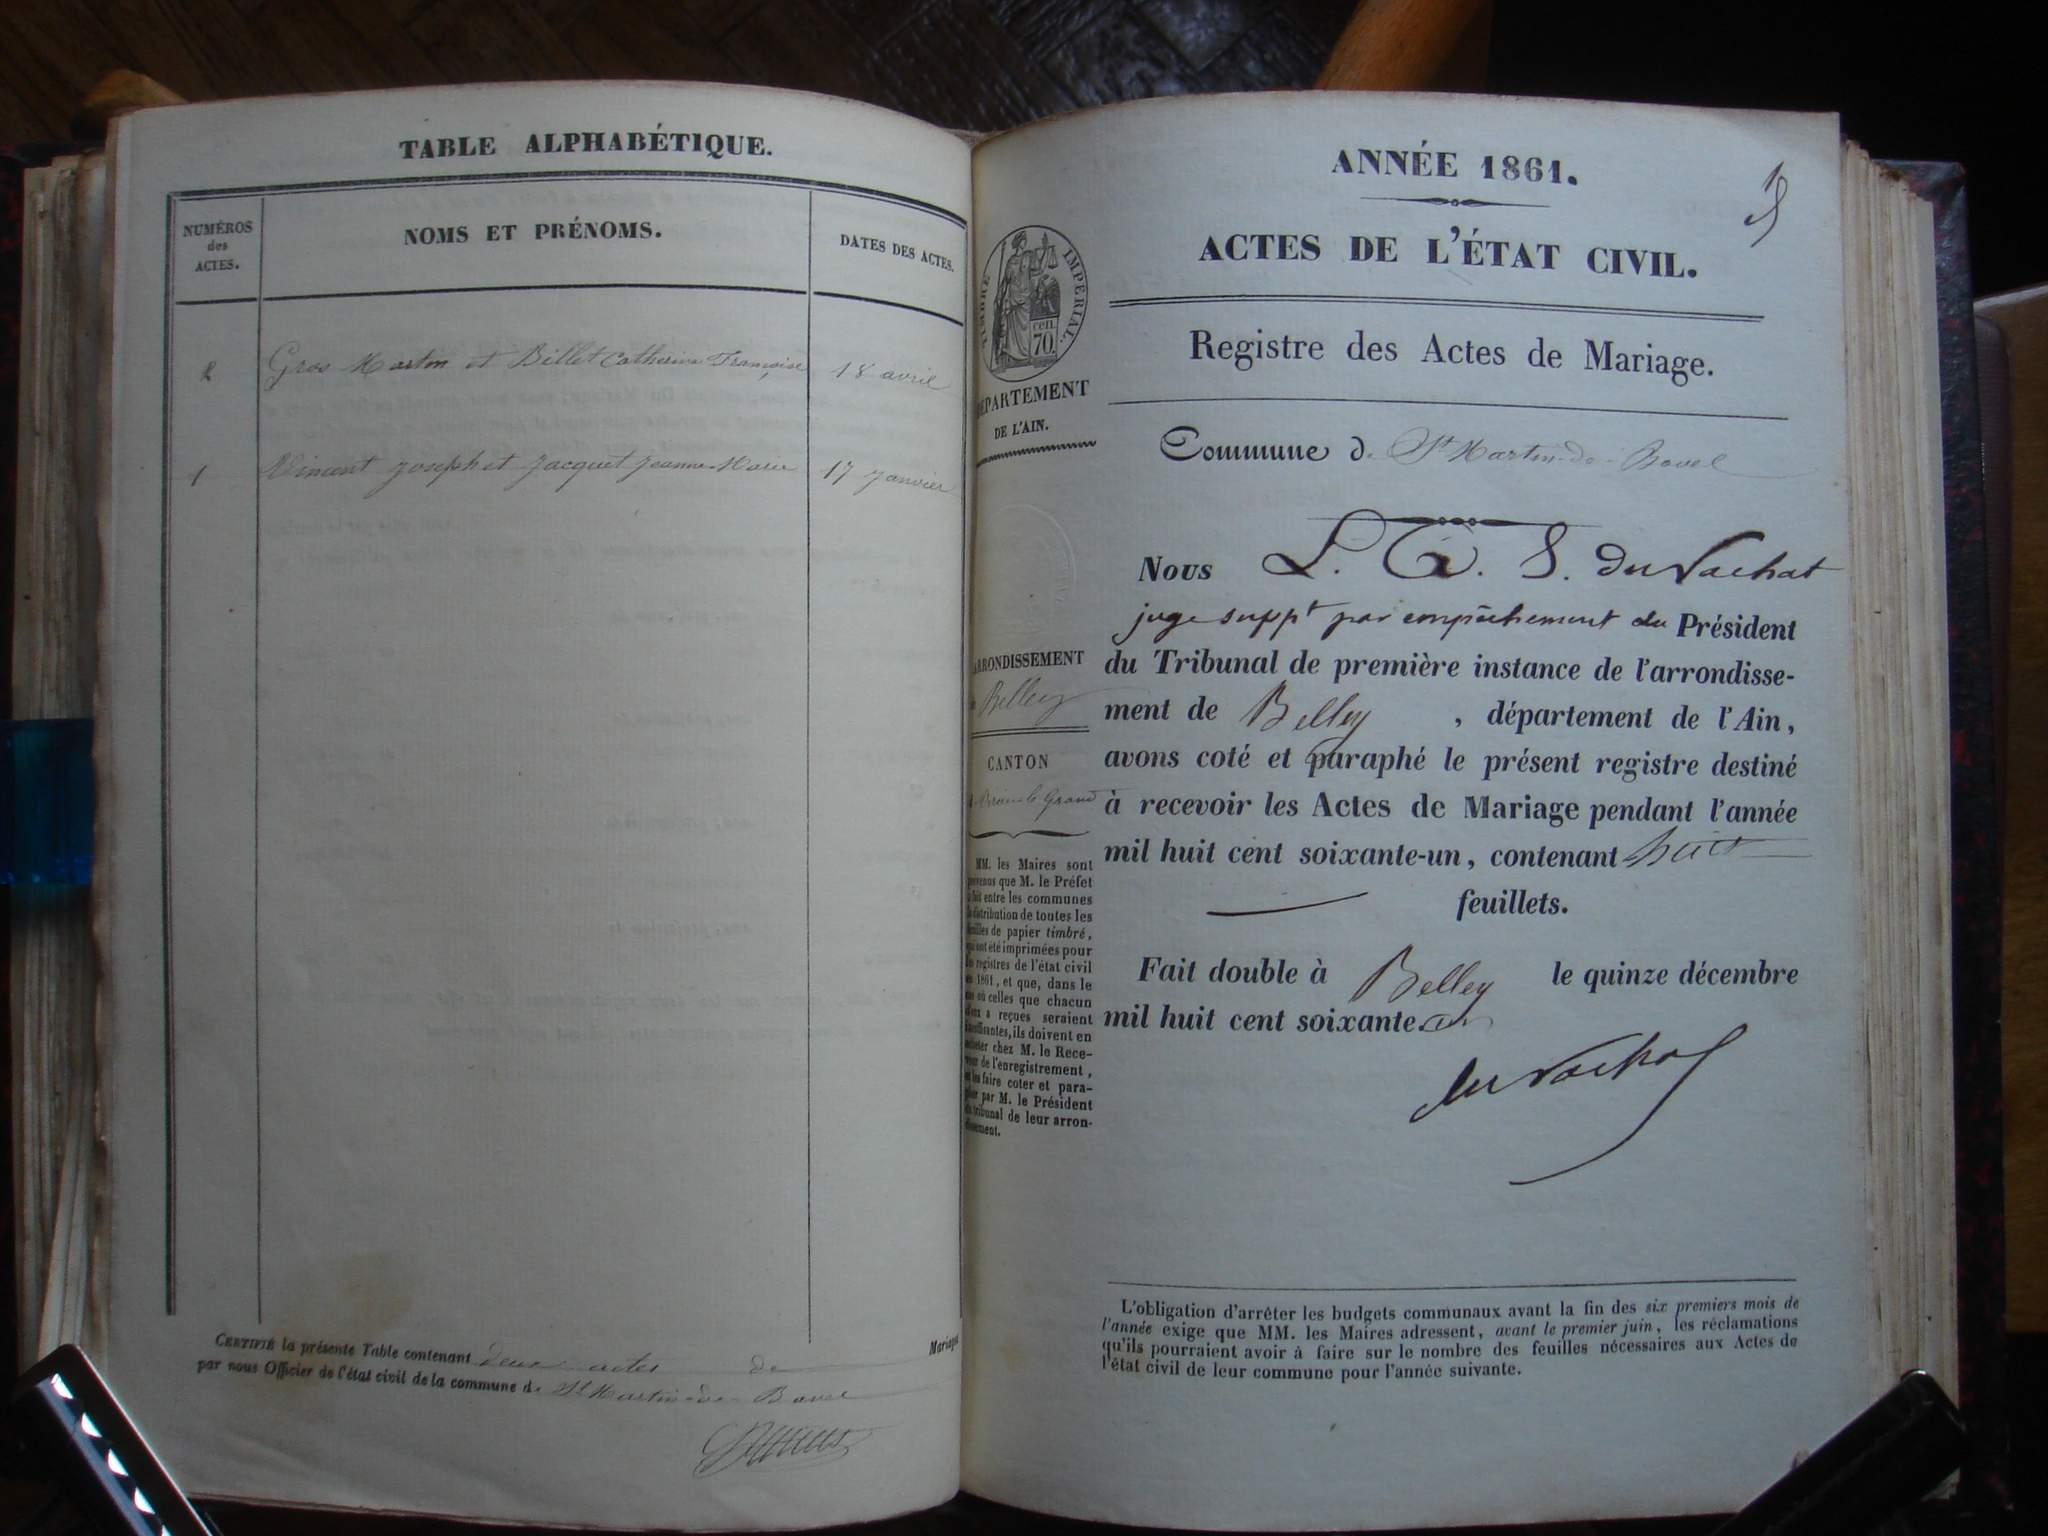 TABLE ALPHABÉTIQUE.
NUMÉROS
des
ACTES.
NOMS ET PRÉNOMS.
DATES DES ACTES.
2 Gros Marton et Billet Catherine Françoise 18 avril
1 Vincent Joseph et Jacquet Jeanne-Marie 17 Janvier
CERTIFIÉ la présente Table contenant deux actes de Mariage
par nous Officier de l'état civil de la commune de St Martin-de-Bavel
ANNÉE 1861.
ACTES DE L'ÉTAT CIVIL.
TIMBRE IMPÉRIAL.
cen.
70.
DÉPARTEMENT
DE L'AIN.
Registre des Actes de Mariage.
Commune de St Martin-de-Bavel
Nous L. G. S. du Vachat
juge suppt par empêchement du Président
du Tribunal de première instance de l'arrondisse-
ment de Belley, département de l'Ain,
avons coté et paraphé le présent registre destiné
à recevoir les Actes de Mariage pendant l'année
mil huit cent soixante-un, contenant huit
feuillets.
Fait double à Belley le quinze décembre
mil huit cent soixante.
du Vachat
ARRONDISSEMENT
de Belley
CANTON
Virieu-le-Grand
MM. les Maires sont
prévenus que M. le Préfet
a fait entre les communes
la distribution de toutes les
feuilles de papier timbré,
qui ont été imprimées pour
les registres de l'état civil
de 1861, et que, dans le
cas où celles que chacun
d'eux a reçues seraient
insuffisantes, ils doivent en
acheter chez M. le Rece-
veur de l'enregistrement,
et les faire coter et para-
pher par M. le Président
du tribunal de leur arron-
dissement.
L'obligation d'arrêter les budgets communaux avant la fin des six premiers mois de
l'année exige que MM. les Maires adressent, avant le premier juin, les réclamations
qu'ils pourraient avoir à faire sur le nombre des feuilles nécessaires aux Actes de
l'état civil de leur commune pour l'année suivante.